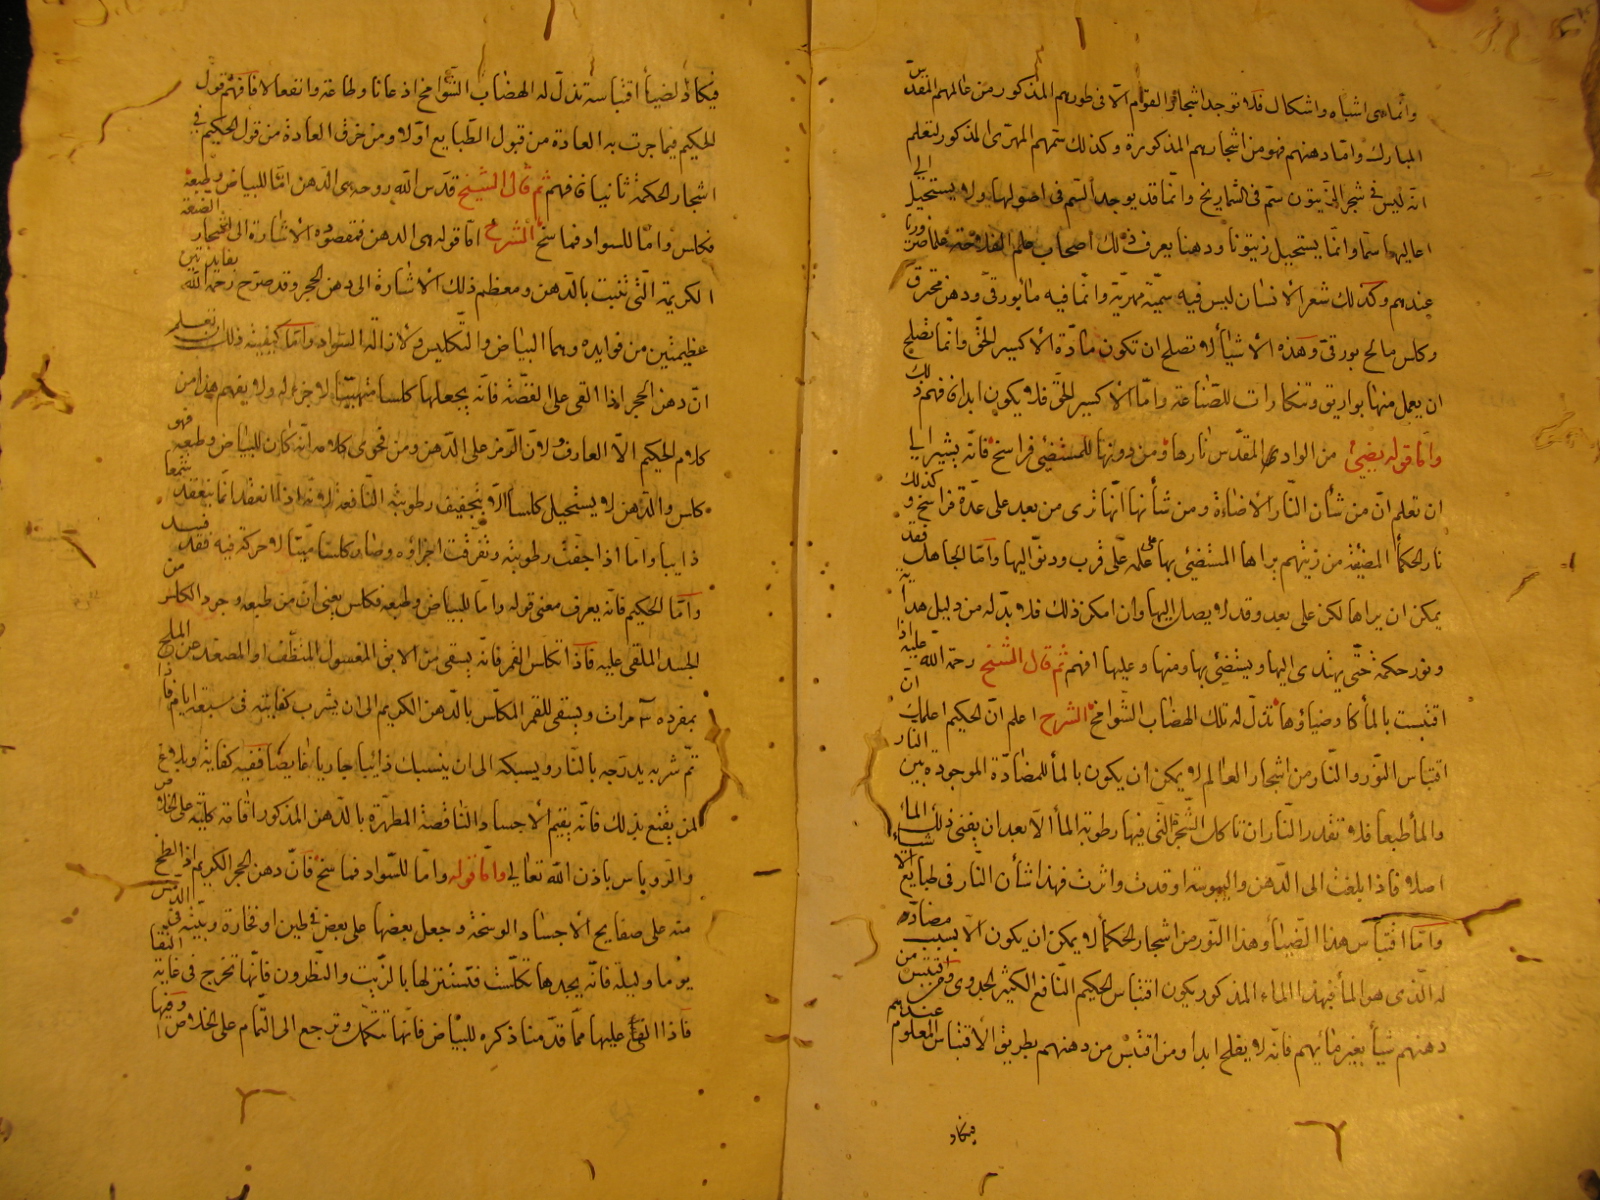 وانما هى اشباه واشكال فلا توجد اشجار القوم الا فى طورهم المذكور من عالمهم المقدس
المبارك واما دهنهم فهو من اشجارهم المذكورة وكذلك سمهم المهرى المذكور لتعلم
انه ليس فى شجر الزيتون سم فى الشماريخ وانما قد يوجد السم فى اصولها ولا يستحيل الى
اعاليها سما وانما يستحيل زيتونا ودهنا يعرف ذلك اصحاب علم الفلاحة علما ضروريا
عندهم وكذلك شعر الانسان ليس فيه سمية مهرية وانما فيه ما بورقى ودهن محترق
وكلس مالح بورقى وهذه الاشياء لا تصلح ان تكون مادة الاكسير الحق وانما تصلح
ان يعمل منها بواريق وتنكارات للصناعة واما الاكسير الحق فلا يكون ابدا فافهم ذلك
واما قوله يضئ من الوادى المقدس نارها ومن دونها للمستضئ فراسخ فانه يشير الى
ان تعلم ان من شأن النار الاضاءة ومن شأنها انها ترى من بعد على عدة فراسخ وكذلك
نار الحكماء المضيئة من زيتهم يراها المستضئ بها على علمه على قرب ودنو اليها واما الجاهل فقد
يمكن ان يراها لكن على بعد وقد لا يصل اليها وان امكن ذلك فلا بد له من دليل هداية
ونور حكمة حتى يهتدى اليها ويستضئ بها ومنها وعليها افهم ثم قال الشيخ رحمة الله عليه اذا
اقتبست بالماء كا وضياؤها تذل له تلك الهضاب الشوامخ الشرح اعلم ان الحكيم اعلمك ان
اقتباس النور والنار من اشجار العالم لا يمكن ان يكون بالماء للمضادة الموجودة بين النار
والماء طبعا فلا تقدر النار ان تاكل الشجرة التى فيها رطوبة الماء الا بعد ان يفنى ذلك الماء
اصلا فاذا بلغت الى الدهن واليبوسة اوقدت واثرت فهذا شأن النار فى طبايع الاشياء
واما اقتباس هذا الضياء وهذا النور من اشجار الحكماء لا يمكن ان يكون الا بسبب مضادة
له الذى هو الماء فبهذا الماء المذكور يكون اقتباس الحكيم النافع الكثير الجدوى ومن اقتبس من
دهنهم شيأ بغير مائهم فانه لا يفلح ابدا ومن اقتبس من دهنهم بطريق الاقتباس المعلوم عندهم
فيكاد
فيكاد لضياء اقتباسه تذل له الهضاب الشوامخ اذعانا وطاعة وانفعالا فافهم قول
الحكيم فيما جرت به العادة من قبول الطبايع اولا ومن خرق العادة من قول الحكيم فى
اشجار الحكمة ثانيا فافهم ثم قال الشيخ قدس الله روحه هى الدهن اما للبياض وطبعه
فكلس واما للسواد فماسخ الشرح اما قوله هى الدهن فمقصوده الاشارة الى اشجار الصنعة
الكريمة التى تنبت بالدهن ومعظم ذلك الاشارة الى دهن الحجر وقد صرح رحمه الله بفايدتين
عظيمتين من فوايده وهما البياض والتكليس ولازالة السواد واما كيفية ذلك ان تعلم
ان دهن الحجر اذا القى على الفضة فانه يجعلها كلسا متهبيا لا جزء له ولا يفهم هذا من
كلام الحكيم الا العارف ولان الرمز على الدهن ومن فحوى كلامه انه كان للبياض وطبعه فهو
كلس والدهن لا يستحيل كلسا الا بتجفيف رطوبته النافعة لانه اذا انعقد انما ينعقد شمعا
ذايبا واما اذا جفت رطوبته وتفرقت اجزاؤه وصار كلسا ميتا لا حركة فيه فقد فسد
واما الحكيم فانه يعرف معنى قوله واما للبياض وطبعه فكلس يعنى ان من طبعه وجود الكلس من
الجسد الملقى عليه فاذا تكلس القمر فانه يسقى من الابق المغسول المنظف او المصعد عن الملح
بمفرده مرات ويسقى للقمر المكلس بالدهن الكريم الى ان يشرب كفايته فى سبعة ايام فاذا
تم شربه يدرجه بالنار ويسبكه الى ان ينسبك ذائبا جاريا غايصا ففيه كفاية وبلاغ
لمن يقنع بذلك فانه يقيم الاجساد الناقصة المطهرة بالدهن المذكور اقامة كلية على الخلاص
والروباس باذن الله تعالى واما قوله واما للسواد فماسخ فان دهن الحجر الكريم اذا الطخ
منه على صفايح الاجساد الوسخة وجعل بعضها على بعض فى طين او فخارة وبيته فى الدمس
يوما وليلة فانه يجدها تكلست فتستنزلها بالزيت والنطرون فانها تخرج فى غاية النقا
فاذا القى عليها مما قدمنا ذكره للبياض فانها تتكمل وترجع الى التمام على الخلاص وفيها